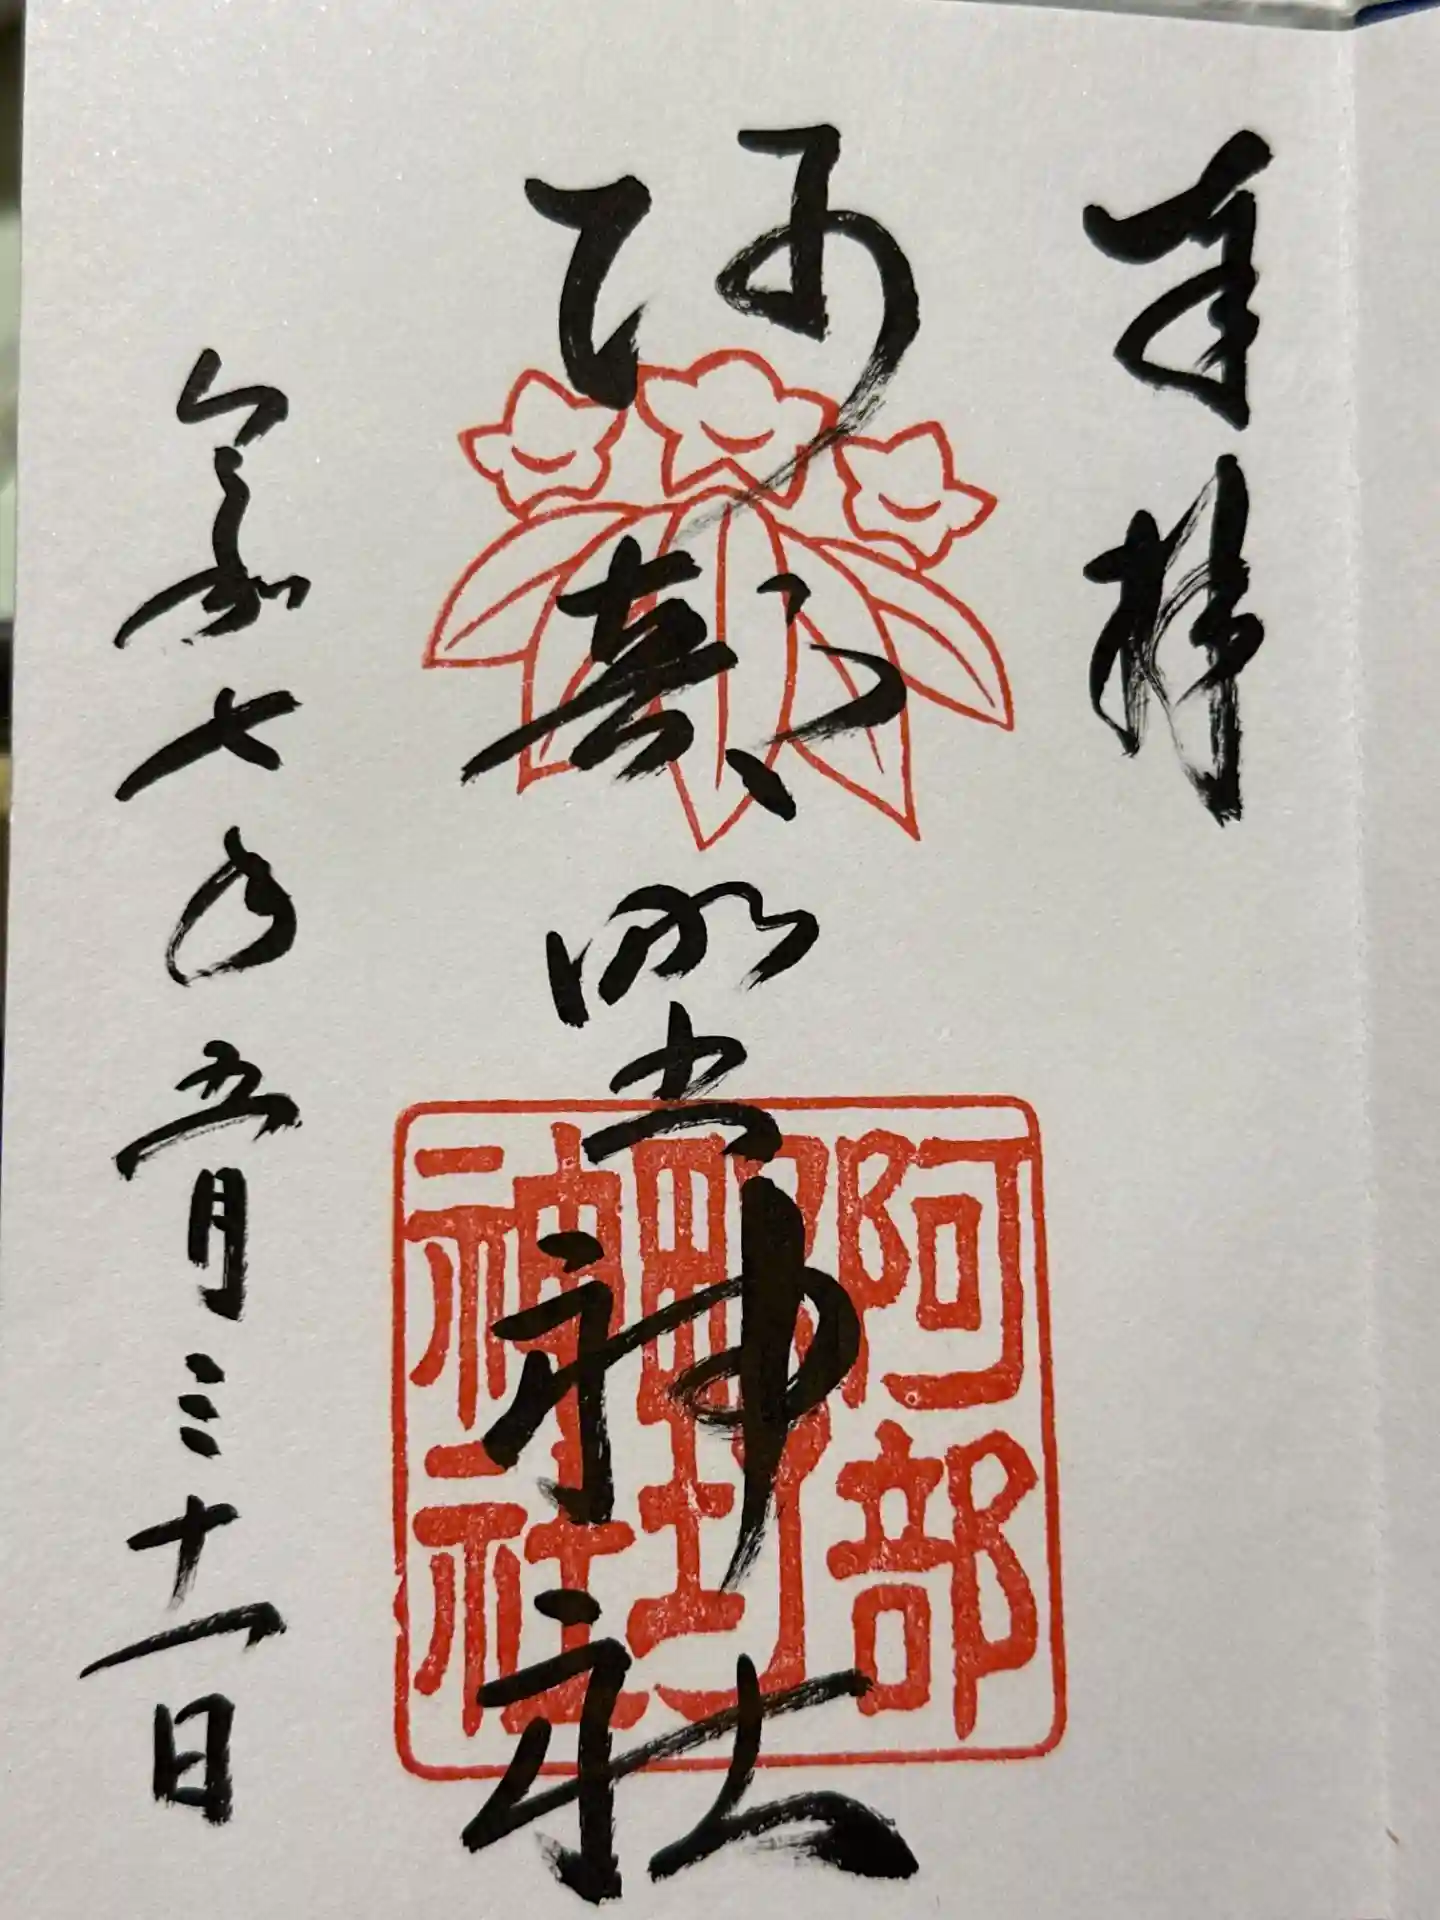 奉拝
阿部野神社
阿部野神社
令和七年五月三十一日